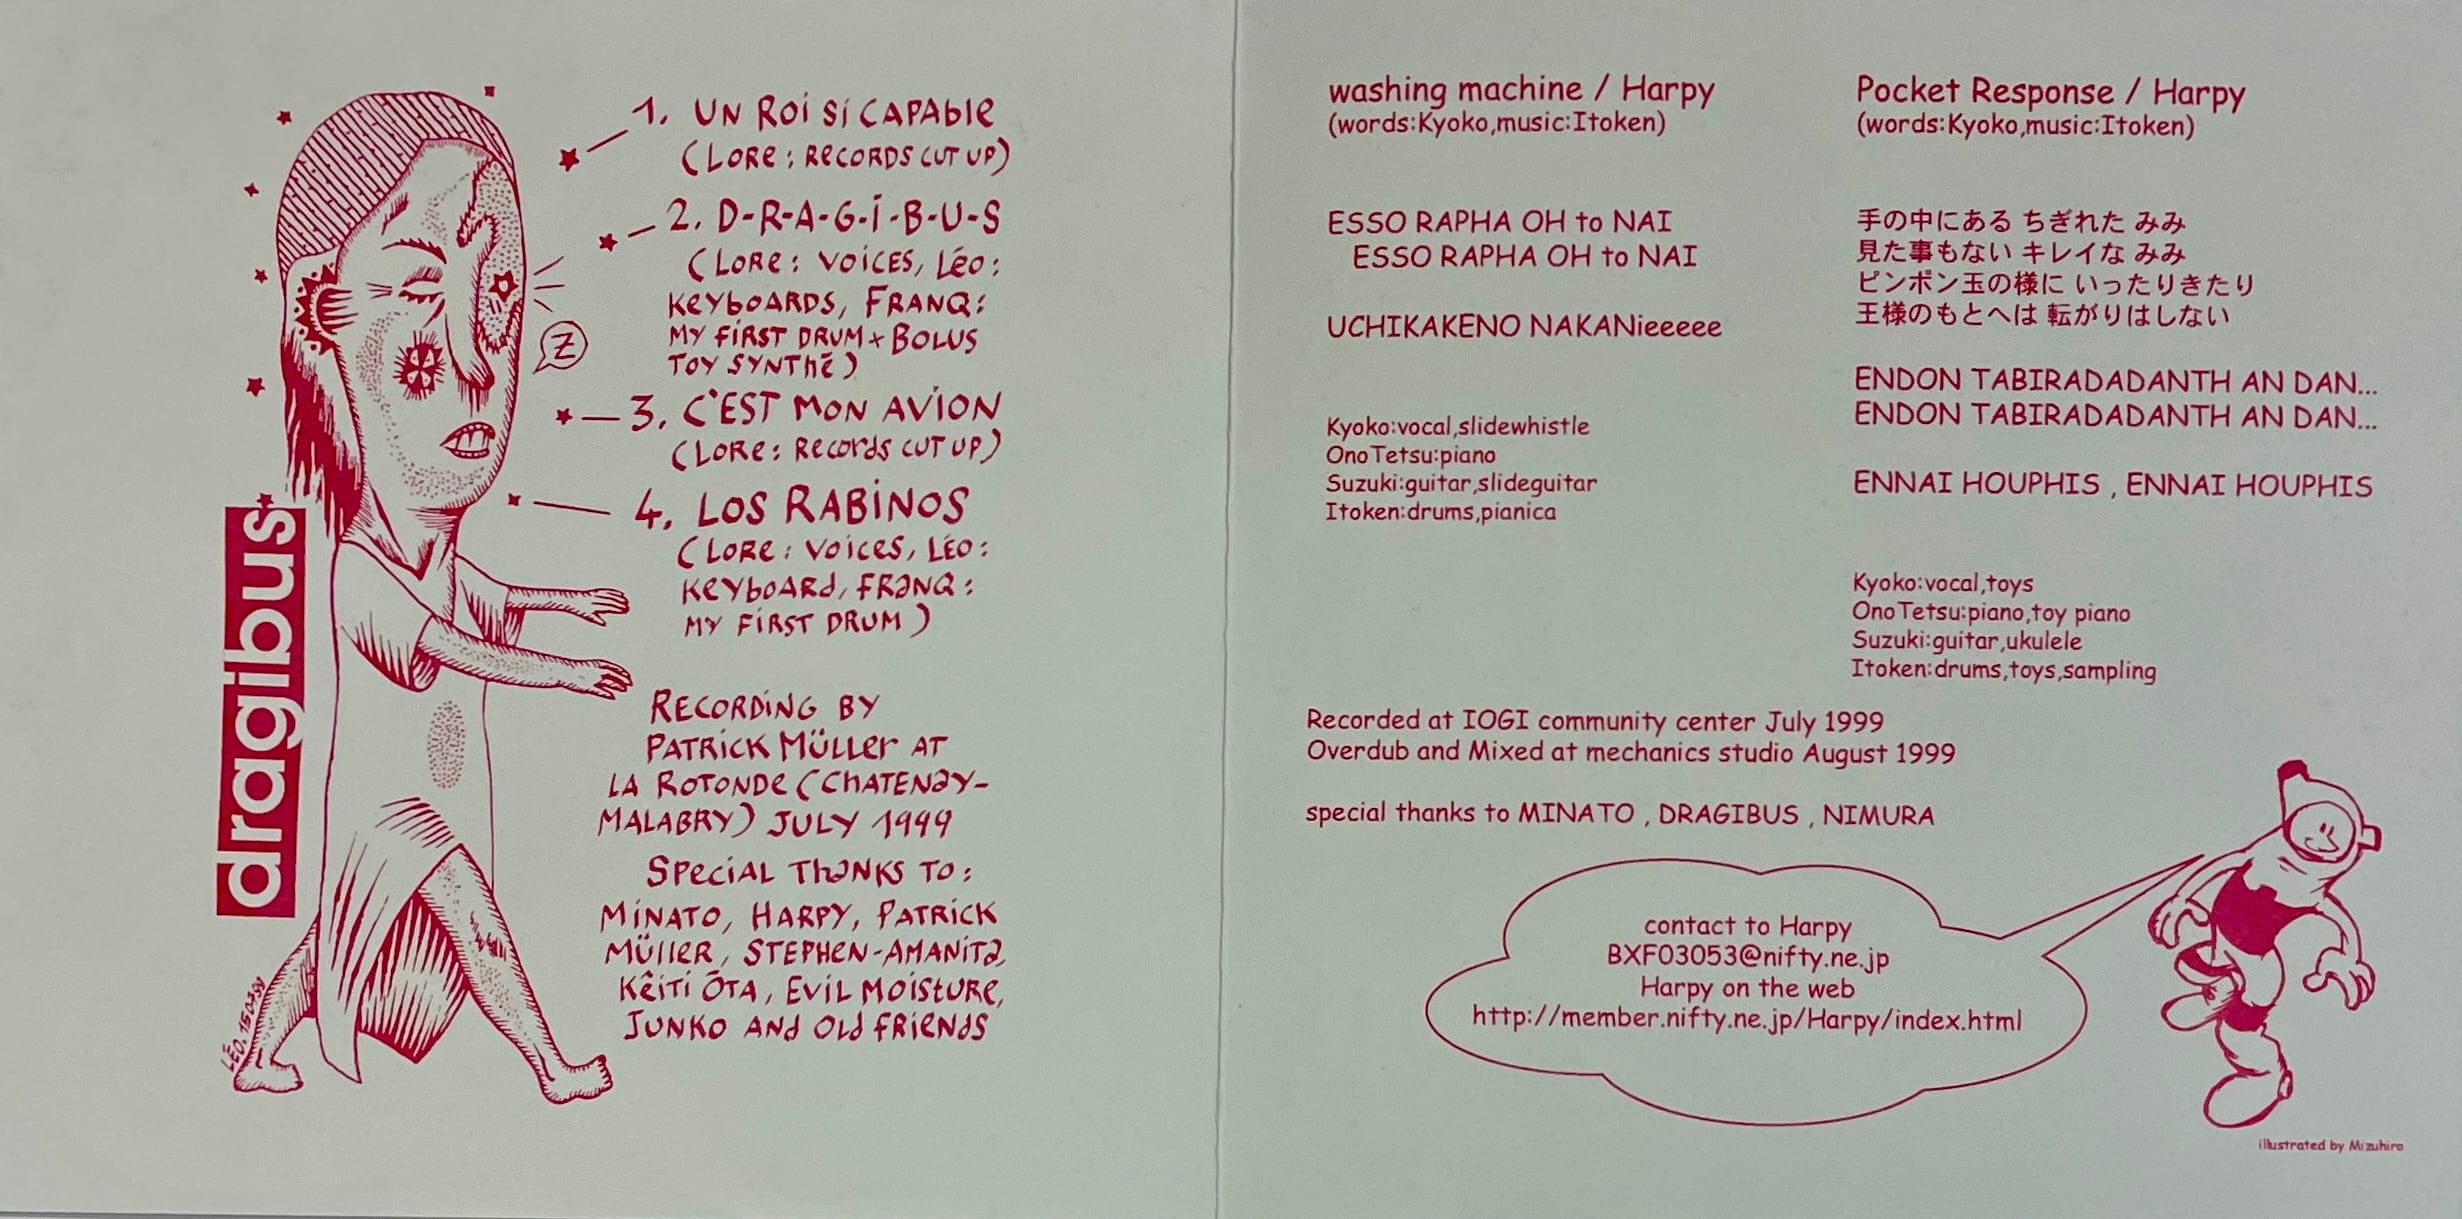 dragibus
1. UN ROI SI CAPABLE
(LORE : RECORDS CUT UP)
2. D-R-A-G-I-B-U-S
(LORE : VOICES, LÉO :
KEYBOARDS, FRANQ :
MY FIRST DRUM + BOLUS
TOY SYNTHÉ)
3. C'EST MON AVION
(LORE : RECORDS CUT UP)
4. LOS RABINOS
(LORE : VOICES, LÉO :
KEYBOARD, FRANQ :
MY FIRST DRUM)
Z
RECORDING BY
PATRICK MÜLLER AT
LA ROTONDE (CHATENAY-
MALABRY) JULY 1999
SPECIAL THANKS TO :
MINATO, HARPY, PATRICK
MÜLLER, STEPHEN-AMANITA,
KÊITI ŌTA, EVIL MOISTURE,
JUNKO AND OLD FRIENDS
washing machine / Harpy
(words:Kyoko,music:Itoken)
ESSO RAPHA OH to NAI
ESSO RAPHA OH to NAI
UCHIKAKENO NAKANieeeee
Kyoko:vocal,slidewhistle
OnoTetsu:piano
Suzuki:guitar,slideguitar
Itoken:drums,pianica
Pocket Response / Harpy
(words:Kyoko,music:Itoken)
手の中にある ちぎれた みみ
見た事もない キレイな みみ
ピンポン玉の様に いったりきたり
王様のもとへは 転がりはしない
ENDON TABIRADADANTH AN DAN...
ENDON TABIRADADANTH AN DAN...
ENNAI HOUPHIS , ENNAI HOUPHIS
Kyoko:vocal,toys
OnoTetsu:piano,toy piano
Suzuki:guitar,ukulele
Itoken:drums,toys,sampling
Recorded at IOGI community center July 1999
Overdub and Mixed at mechanics studio August 1999
special thanks to MINATO , DRAGIBUS , NIMURA
contact to Harpy
BXF03053@nifty.ne.jp
Harpy on the web
http://member.nifty.ne.jp/Harpy/index.html
illustrated by Mizuhiro
LÉO.